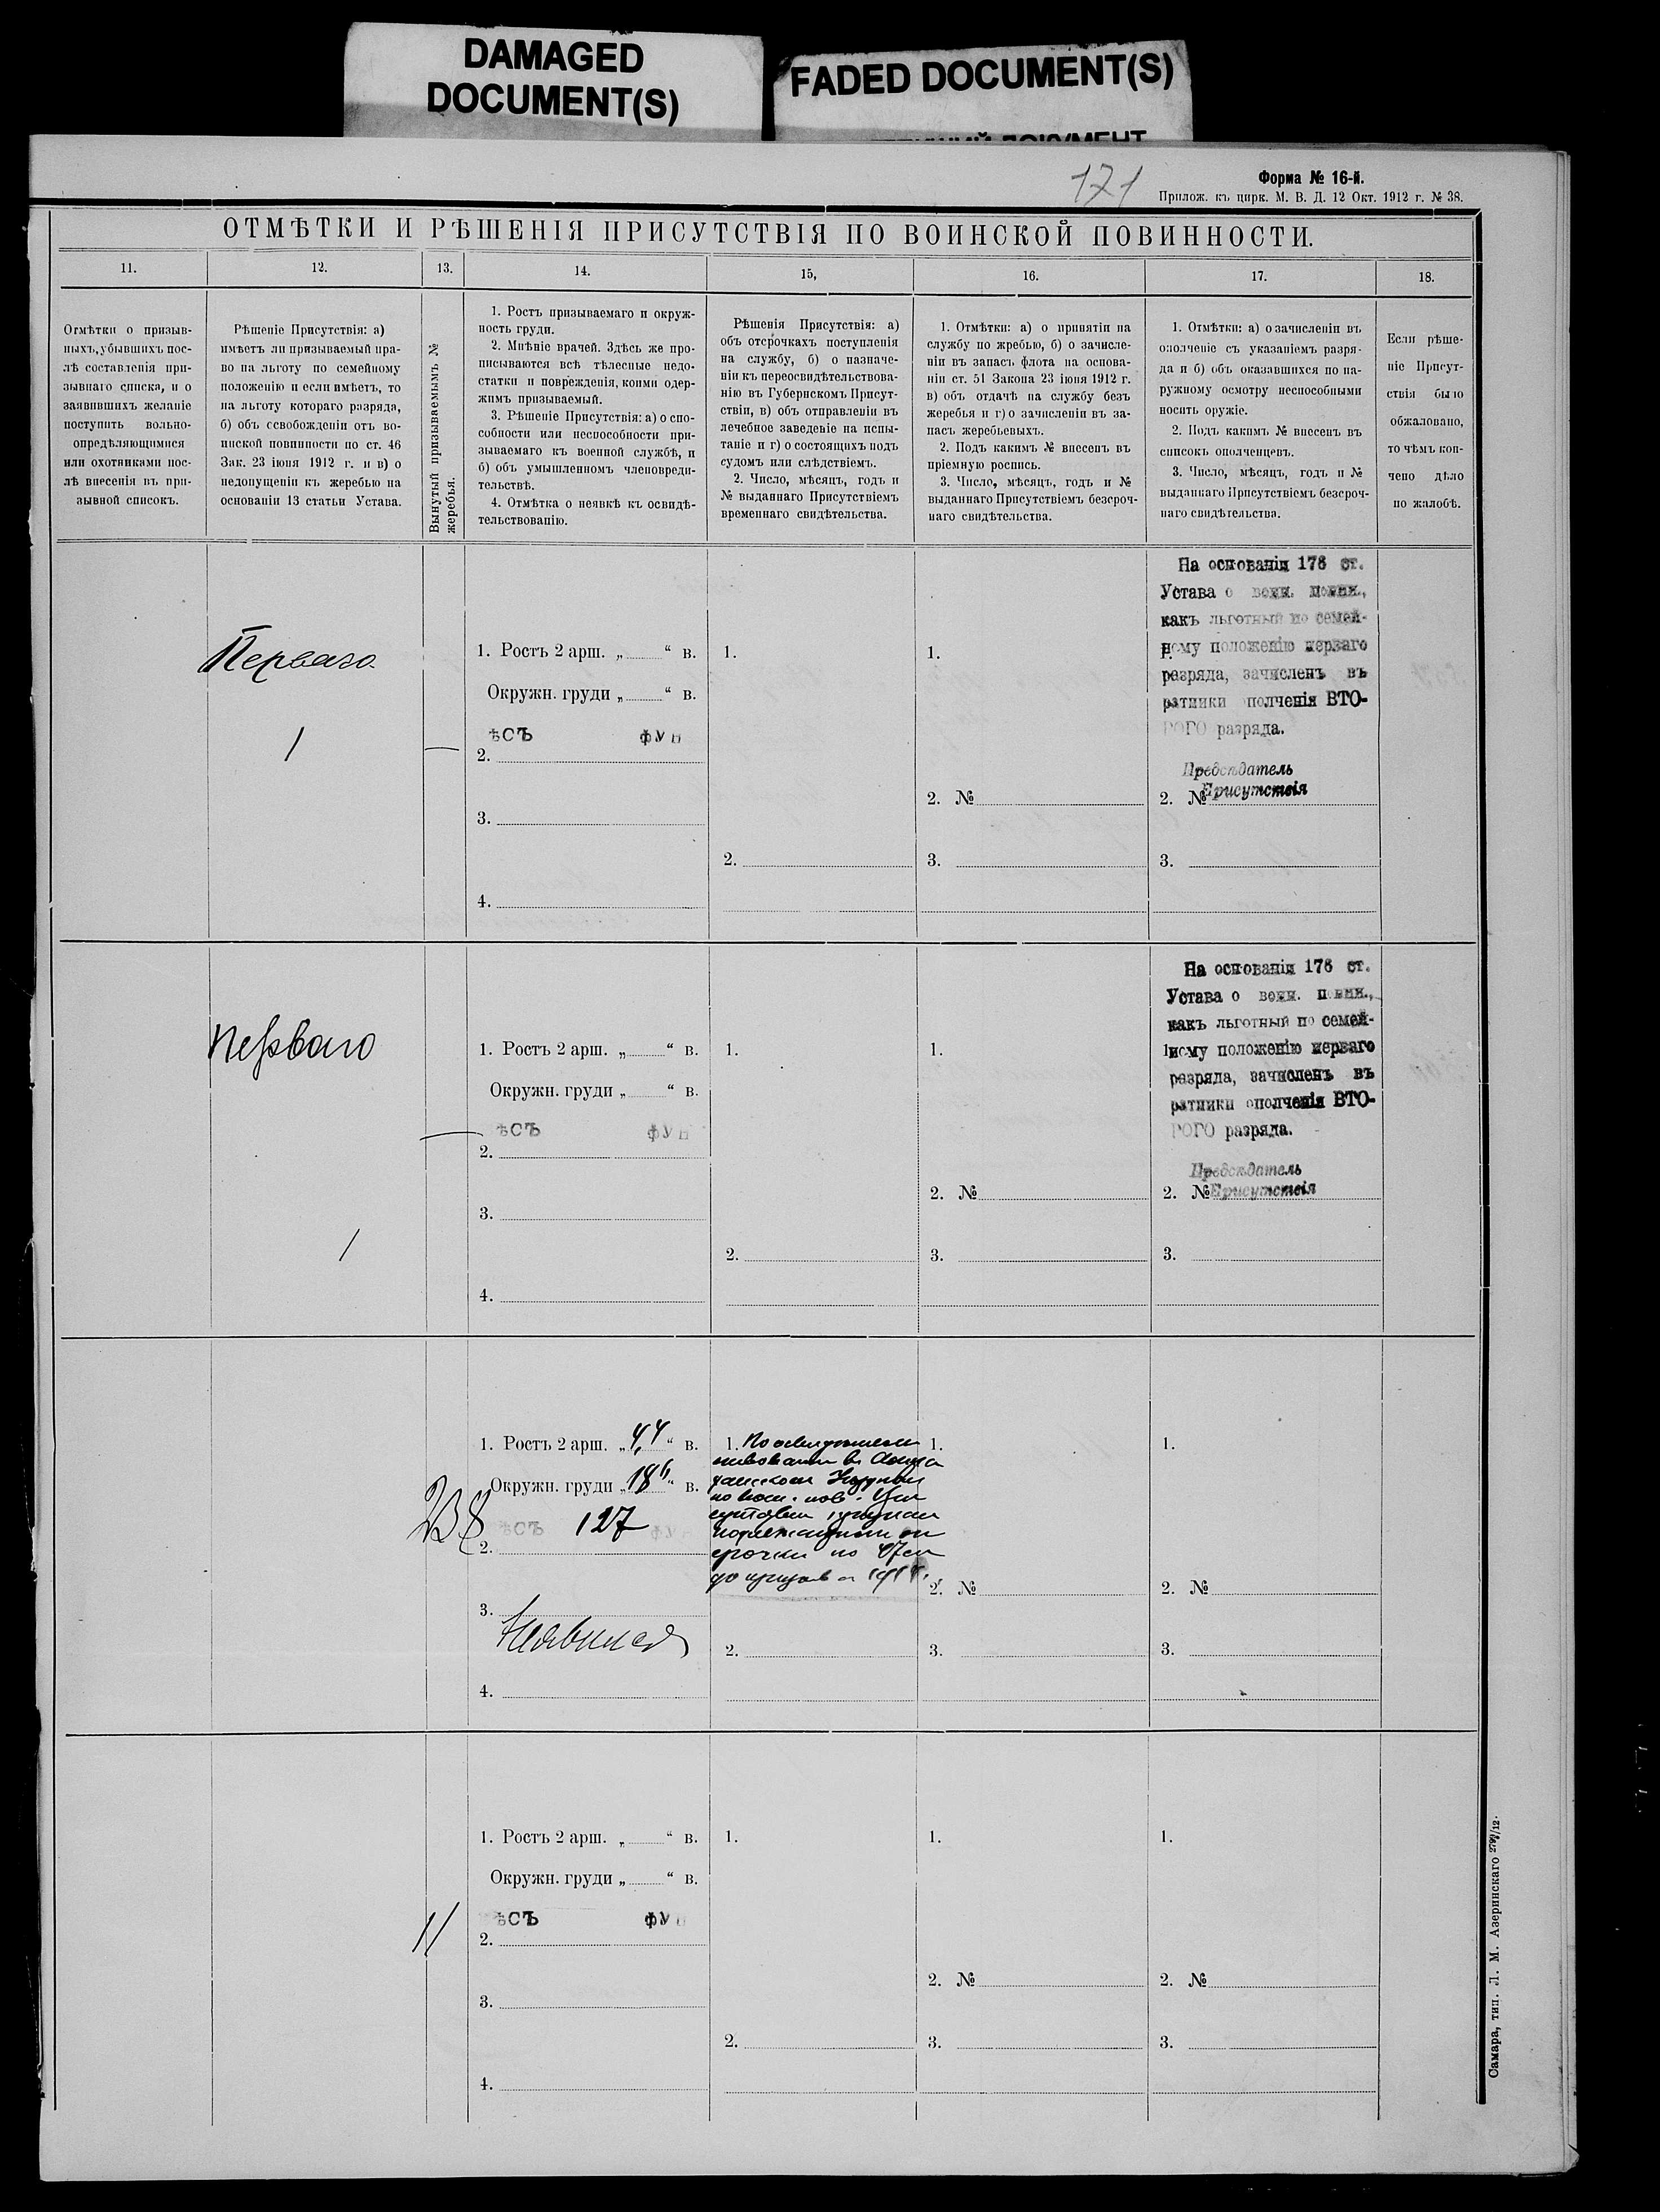 DAMAGED
DOCUMENT(S)
FADED DOCUMENT(S)
171
Форма № 16-й.
Прилож. къ цирк. М. В. Д. 12 Окт. 1912 г. № 38.
ОТМѢТКИ И РѢШЕНІЯ ПРИСУТСТВІЯ ПО ВОИНСКОЙ ПОВИННОСТИ.
11.
12.
13.
14.
15,
16.
17.
18.
Отмѣтки о призыв-
ныхъ, убывшихъ пос-
лѣ составленія при-
зывнаго списка, и о
заявившихъ желаніе
поступить вольно-
опредѣляющимися
или охотниками пос-
лѣ внесенія въ при-
зывной списокъ.
Рѣшеніе Присутствія: а)
имѣетъ ли призываемый пра-
во на льготу по семейному
положенію и если имѣетъ, то
на льготу котораго разряда,
б) объ освобожденіи отъ во-
инской повинности по ст. 46
Зак. 23 іюня 1912 г. и в) о
недопущеніи къ жеребью на
основаніи 13 статьи Устава.
Вынутый призываемымъ №
жеребья.
1. Ростъ призываемаго и окруж-
ность груди.
2. Мнѣніе врачей. Здѣсь же про-
писываются всѣ тѣлесные недо-
статки и поврежденія, коими одер-
жимъ призываемый.
3. Рѣшеніе Присутствія: а) о спо-
собности или неспособности при-
зываемаго къ военной службѣ, и
б) объ умышленномъ членовреди-
тельствѣ.
4. Отмѣтка о неявкѣ къ освидѣ-
тельствованію.
Рѣшенія Присутствія: а)
объ отсрочкахъ поступленія
на службу, б) о назначе-
ніи къ переосвидѣтельствова-
нію въ Губернскомъ Присут-
ствіи, в) объ отправленіи въ
лечебное заведеніе на испы-
таніе и г) о состоящихъ подъ
судомъ или слѣдствіемъ.
2. Число, мѣсяцъ, годъ и
№ выданнаго Присутствіемъ
временнаго свидѣтельства.
1. Отмѣтки: а) о принятіи на
службу по жребью, б) о зачисле-
ніи въ запасъ флота на основа-
ніи ст. 51 Закона 23 іюня 1912 г.
в) объ отдачѣ на службу безъ
жеребья и г) о зачисленіи въ за-
пасъ жеребьевыхъ.
2. Подъ какимъ № внесенъ въ
пріемную роспись.
3. Число, мѣсяцъ, годъ и №
выданнаго Присутствіемъ безсроч-
наго свидѣтельства.
1. Отмѣтки: а) о зачисленіи въ
ополченіе съ указаніемъ разря-
да и б) объ оказавшихся по на-
ружному осмотру неспособными
носить оружіе.
2. Подъ какимъ № внесенъ въ
списокъ ополченцевъ.
3. Число, мѣсяцъ, годъ и №
выданнаго Присутствіемъ безсроч-
наго свидѣтельства.
Если рѣше-
ніе Присут-
ствія было
обжаловано,
то чѣмъ кон-
чено дѣло
по жалобѣ.
Перваго
1
1. Ростъ 2 арш. „ “ в.
Окружн. груди „ “ в.
ѣсъ фун
2.
3.
4.
1.
2.
1.
2. №
3.
На основаніи 176 ст.
Устава о воин. повин.,
какъ льготный по семей-
ному положенію перваго
разряда, зачисленъ въ
ратники ополченія ВТО-
РОГО разряда.
Предсѣдатель
Присутствія
2. №
3.
Перваго
1
1. Ростъ 2 арш. „ “ в.
Окружн. груди „ “ в.
ѣсъ фун
2.
3.
4.
1.
2.
1.
2. №
3.
На основаніи 176 ст.
Устава о воин. повин.,
какъ льготный по семей-
ному положенію перваго
разряда, зачисленъ въ
ратники ополченія ВТО-
РОГО разряда.
Предсѣдатель
Присутствія
2. №
3.
238
1. Ростъ 2 арш. „ 4,4 “ в.
Окружн. груди „ 18 “ в.
ѣсъ 127
2.
3.
Неявился
4.
1. По
по воин. пов.
срочки по 47 ст
до призыва
2.
1.
2. №
3.
1.
2. №
3.
1. Ростъ 2 арш. „ “ в.
Окружн. груди „ “ в.
ѣсъ фун
2.
3.
4.
1.
2.
1.
2. №
3.
1.
2. №
3.
Самара, тип. Л. М. Азеринскаго